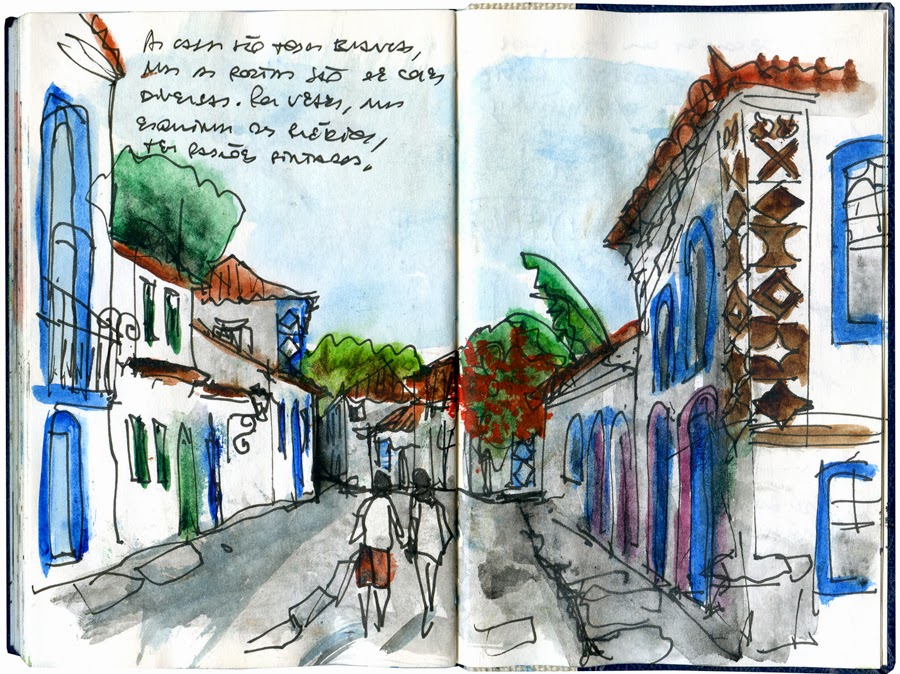 As casas são todas brancas,
mas as portas são de cores
diversas. Por vezes, nas
esquinas os prédios,
têm padrões pintados.